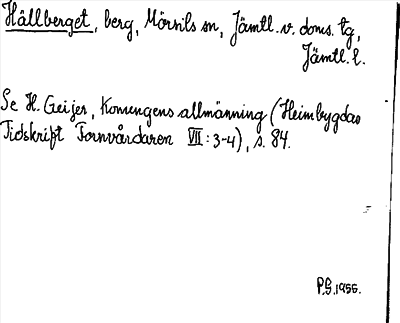 Hällberget, berg, Mörsils sn, Jämtl. v. doms. tg,
Jämtl. l.
Se H. Geijer, Konungens allmänning (Heimbygdas
Tidskrift Fornvårdaren VII: 3-4), s. 84.
P.G. 1955.